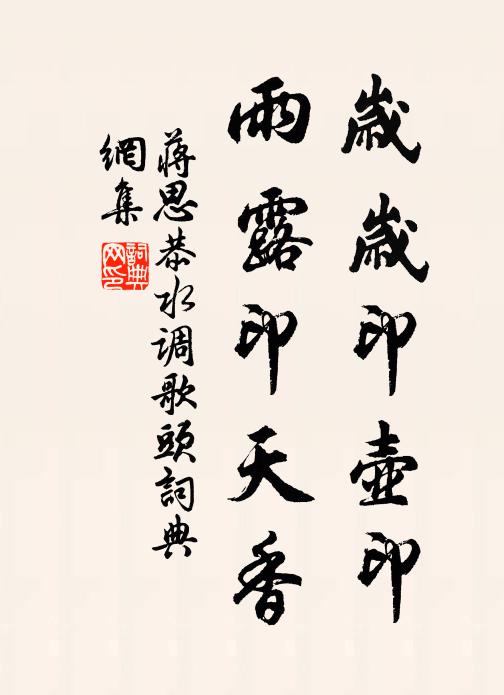 歲歲印壺印
雨露印天香
蔣思恭水调歌頭詞典
網集
詞典网印